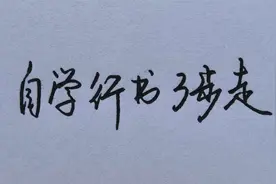 自学行书3步走